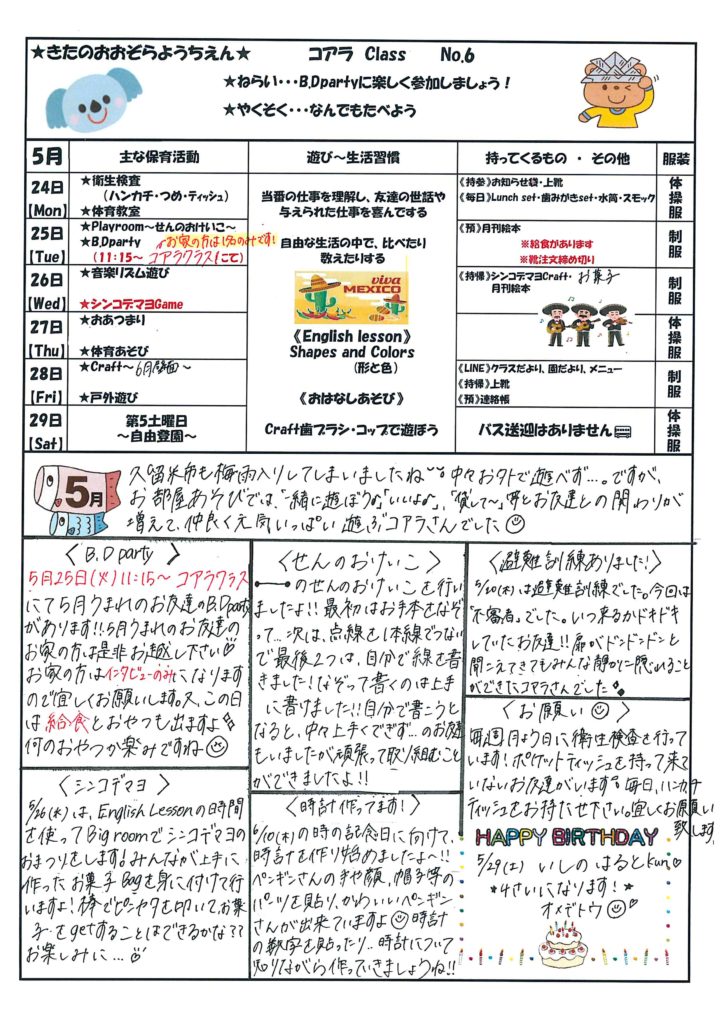 ★きたのおおぞらようちえん★ コアラ Class No.6
★ねらい・・・B,Dpartyに楽しく参加しましょう！
★やくそく・・・なんでもたべよう
5月 主な保育活動 遊び～生活習慣 持ってくるもの ・ その他 服装
24日
【Mon】
★衛生検査
（ハンカチ・つめ・ティッシュ）
★体育教室
当番の仕事を理解し、友達の世話や
与えられた仕事を喜んでする
《持参》お知らせ袋・上靴
《毎日》Lunch set・歯みがきset・水筒・スモック
体操服
25日
【Tue】
★Playroom～せんのおけいこ～
★B,Dparty お家の方は1名のみです!
（11:15～ コアラクラスにて）
自由な生活の中で、比べたり
数えたりする
《預》月刊絵本
※給食があります
※靴注文締め切り
制服
26日
【Wed】
★音楽リズム遊び
★シンコデマヨGame
viva
MEXICO
《持帰》シンコデマヨCraft・お菓子
月刊絵本
制服
27日
【Thu】
★おあつまり
★体育あそび
《English lesson》
Shapes and Colors
（形と色）
体操服
28日
【Fri】
★Craft～6月壁面～
★戸外遊び
《おはなしあそび》
《LINE》クラスだより、園だより、メニュー
《持帰》上靴
《預》連絡帳
制服
29日
【Sat】
第5土曜日
～自由登園～
Craft歯ブラシ・コップで遊ぼう
バス送迎はありません
体操服
5月
久留米市も梅雨入りしてしまいましたね 中々お外で遊べず…。ですが、
お部屋あそびでは、「一緒に遊ぼう」「いいよ」、「貸して～」等とお友達との関わりが
増えて、仲良く元気いっぱい遊ぶコアラさんでした
〈B,D party〉
5月25日(火)11:15～ コアラクラス
にて5月うまれのお友達のB,Dparty
があります!!5月うまれのお友達の
お家の方は是非お越し下さい
お家の方はインタビューのみになります
ので宜しくお願いします。又、この日
は給食とおやつも出ますよ
何のおやつか楽みですね
〈シンコデマヨ〉
5/26(水)は、English Lessonの時間
を使ってBig roomでシンコデマヨの
おまつりをします!みんなが上手に
作ったお菓子Bagを身に付けて行
いますよ!棒でピニャタを叩いて、お菓
子をgetすることはできるかな??
お楽しみに…
〈せんのおけいこ〉
のせんのおけいこを行い
ましたよ!!最初はお手本をなぞ
って…次は、点線を1本線でつない
で最後2つは、自分で線を書
きました!なぞって書くのは上手
に書けました!!自分で書こうと
なると、中々上手くできず…のお友達
もいましたが頑張って取り組むこと
ができましたよ!!
〈時計作ってます!〉
6/10(木)の時の記念日に向けて、
時計を作り始めましたよ～!!
ペンギンさんの手や顔、帽子等の
パーツを貼り、かわいいペンギン
さんが出来ていますよ 時計
の数字を貼ったり…時計について
知りながら作っていきましょうね!!
〈避難訓練ありました!〉
5/20(木)は避難訓練でした。今回は
"不審者"でした。いつ来るかドキドキ
していたお友達!!扉がドンドンドンと
聞こえてきてもみんな静かに隠れること
ができたコアラさんでした
〈お願い〉
毎週月よう日に衛生検査を行って
います!ポケットティッシュを持って来て
いないお友達がいます 毎日、ハンカチ
ティッシュをお持たせ下さい。宜しくお願い
致します
HAPPY BIRTHDAY
5/29(土) いしの はるとkun
*4さいになります!*
オメデトウ